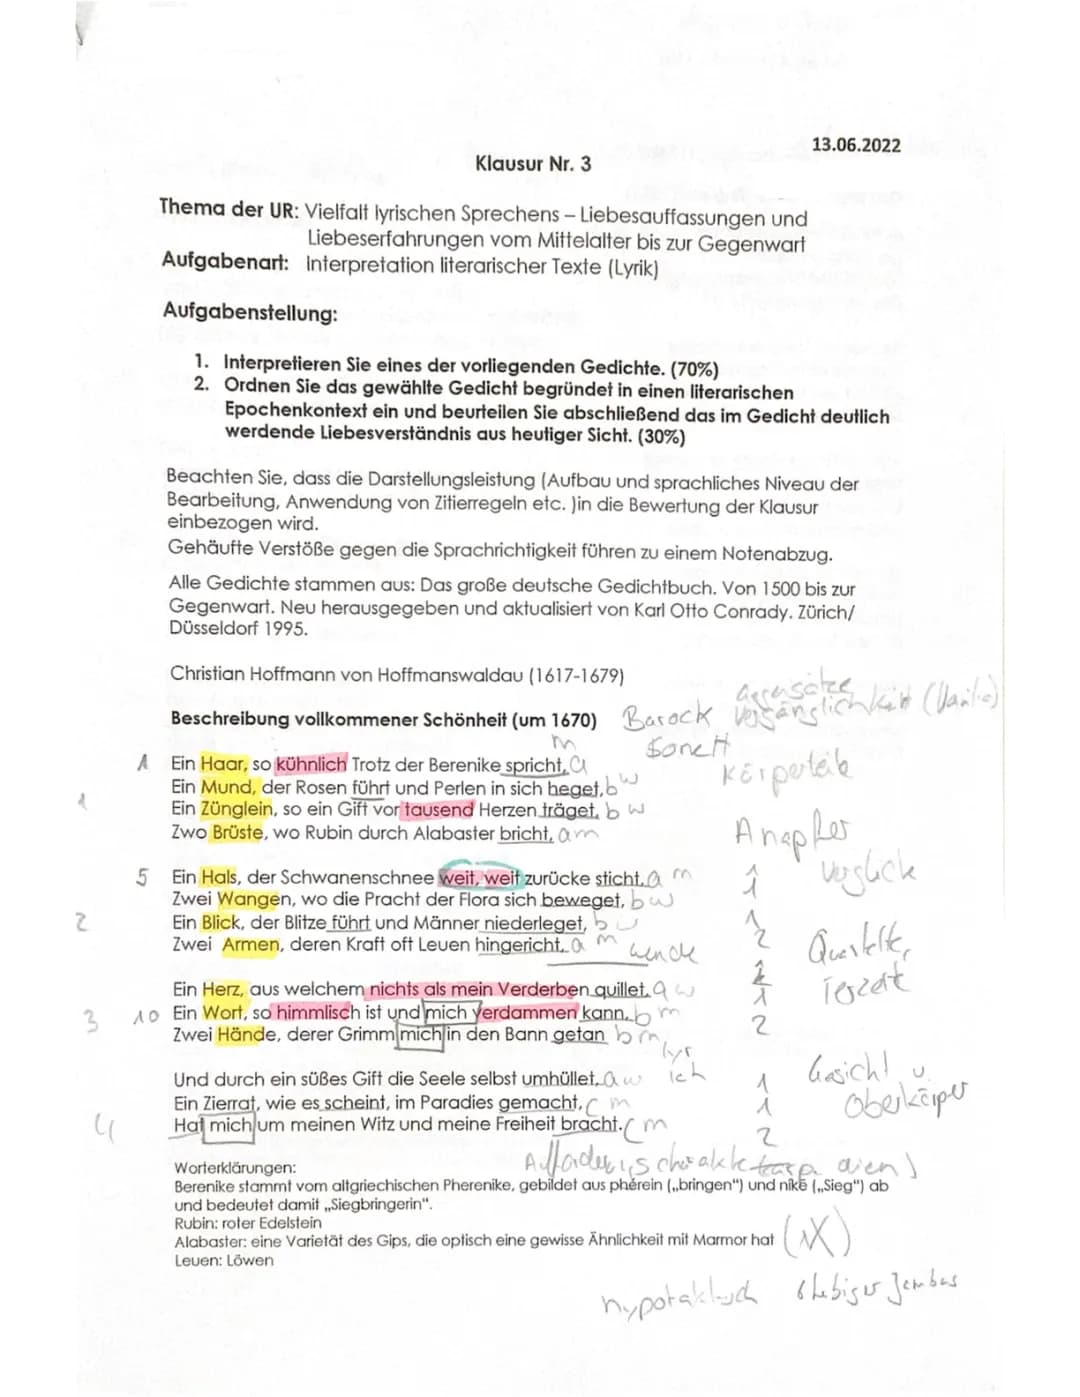 13.06.2022
Klausur Nr. 3
Thema der UR: Vielfalt lyrischen Sprechens – Liebesauffassungen und
Liebeserfahrungen vom Mittelalter bis zur Gegenwart
Aufgabenart: Interpretation literarischer Texte (Lyrik)
Aufgabenstellung:
1. Interpretieren Sie eines der vorliegenden Gedichte. (70%)
2. Ordnen Sie das gewählte Gedicht begründet in einen literarischen
Epochenkontext ein und beurteilen Sie abschließend das im Gedicht deutlich
werdende Liebesverständnis aus heutiger Sicht. (30%)
Beachten Sie, dass die Darstellungsleistung (Aufbau und sprachliches Niveau der
Bearbeitung, Anwendung von Zitierregeln etc. )in die Bewertung der Klausur
einbezogen wird.
Gehäufte Verstöße gegen die Sprachrichtigkeit führen zu einem Notenabzug.
Alle Gedichte stammen aus: Das große deutsche Gedichtbuch. Von 1500 bis zur
Gegenwart. Neu herausgegeben und aktualisiert von Karl Otto Conrady. Zürich/
Düsseldorf 1995.
Christian Hoffmann von Hoffmanswaldau (1617-1679)
Gegensätze
Beschreibung vollkommener Schönheit (um 1670) Barock Vergänglichkeit
m Sonett
1 Ein Haar, so kühnlich Trotz der Berenike spricht, a Körperteile
Ein Mund, der Rosen führt und Perlen in sich heget, b w
1 Ein Zünglein, so ein Gift vor tausend Herzen träget, b w
Zwo Brüste, wo Rubin durch Alabaster bricht, a m Anapher
5 Ein Hals, der Schwanenschnee weit, weit zurücke sticht, a m 1 Vergleiche
Zwei Wangen, wo die Pracht der Flora sich beweget, b w 1
2 Ein Blick, der Blitze führt und Männer niederleget, b w 1
Zwei Armen, deren Kraft oft Leuen hingericht, a m wende 2 Quartette,
Ein Herz, aus welchem nichts als mein Verderben quillet, a w Terzett
3 10 Ein Wort, so himmlisch ist und mich verdammen kann, b m 1
Zwei Hände, derer Grimm mich in den Bann getan b m 2
lyr
Und durch ein süßes Gift die Seele selbst umhüllet, a w ich 1 Gesicht u
Ein Zierrat, wie es scheint, im Paradies gemacht, c m 1 Oberkörper
4 Hat mich um meinen Witz und meine Freiheit bracht. c m 2
Worterklärungen:
Berenike stammt vom altgriechischen Pherenike, gebildet aus phérein („bringen") und nikē („Sieg") ab
und bedeutet damit „Siegbringerin".
Rubin: roter Edelstein
Alabaster: eine Varietät des Gips, die optisch eine gewisse Ähnlichkeit mit Marmor hat (1X)
Leuen: Löwen
hypotaktisch 6hebiger Jambus